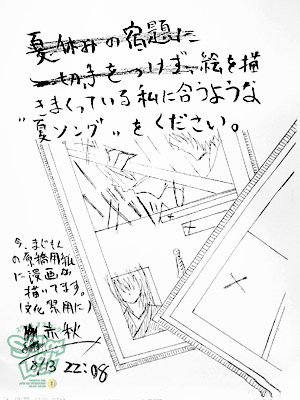 夏休みの宿題に
一切手をつけず、絵を描
きまくっている私に合うような
"夏ソング"をください。
今、まじもん
の原稿用紙
に漫画を
描いてます。
(文化祭用に)
赤秋
8/13 22:08